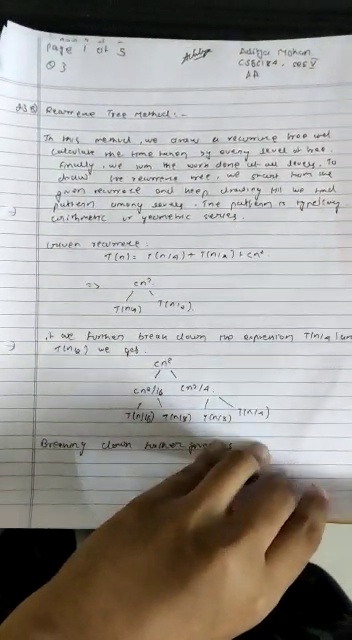 Page 1 of 5
Aditya Mohan
Q3
CSE
AA
Recurrence Tree Method:-
In this method, we draw a recurrence tree and
calculate the time taken by every level of tree.
Finally, we sum the work done at all levels. To
draw the recurrence tree, we start from the
given recurrence and keep drawing till we find
pattern among levels. The pattern is typically
arithmetic or geometric series.
Given recurrence:
T(n) = T(n/4) + T(n/2) + cn²
=> cn²
T(n/4) T(n/2)
If we further break down the expression T(n/4) and
T(n/2) we get.
cn²
cn²/16 cn²/4
T(n/16) T(n/8) T(n/8) T(n/4)
Breaking down further gives us